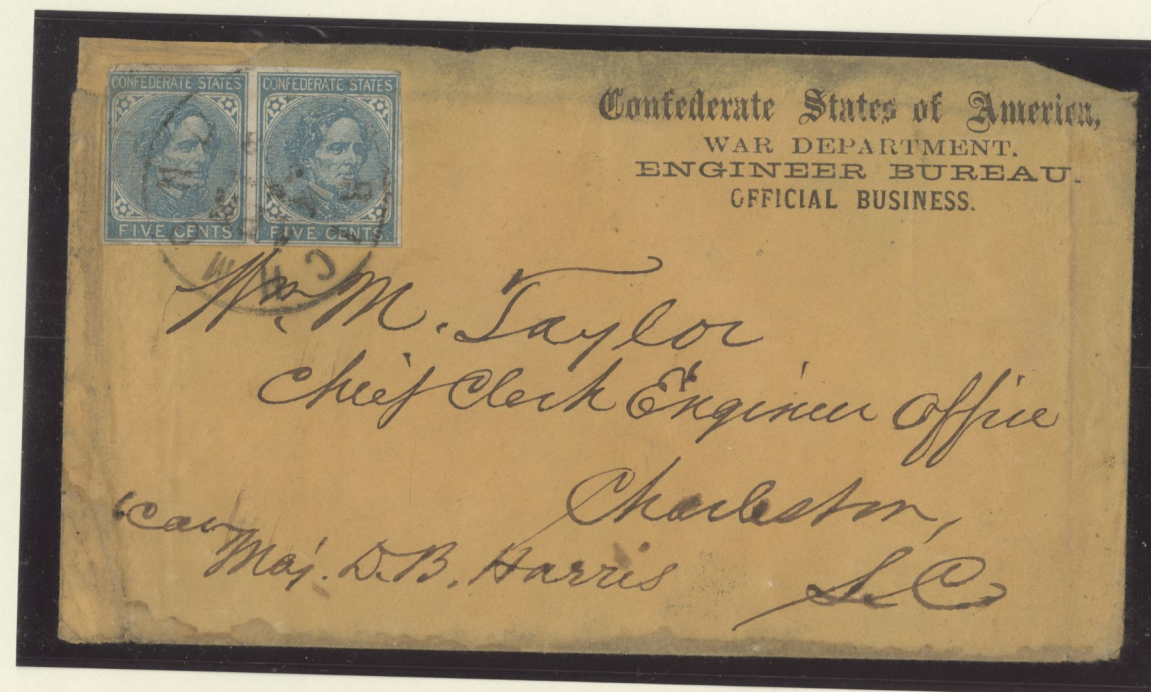 CONFEDERATE STATES
FIVE CENTS
CONFEDERATE STATES
FIVE CENTS
Confederate States of America,
WAR DEPARTMENT.
ENGINEER BUREAU.
OFFICIAL BUSINESS.
Wm. M. Taylor
Chief Clerk Engineer Office
Charleston,
S.C.
Care
Maj. D. B. Harris